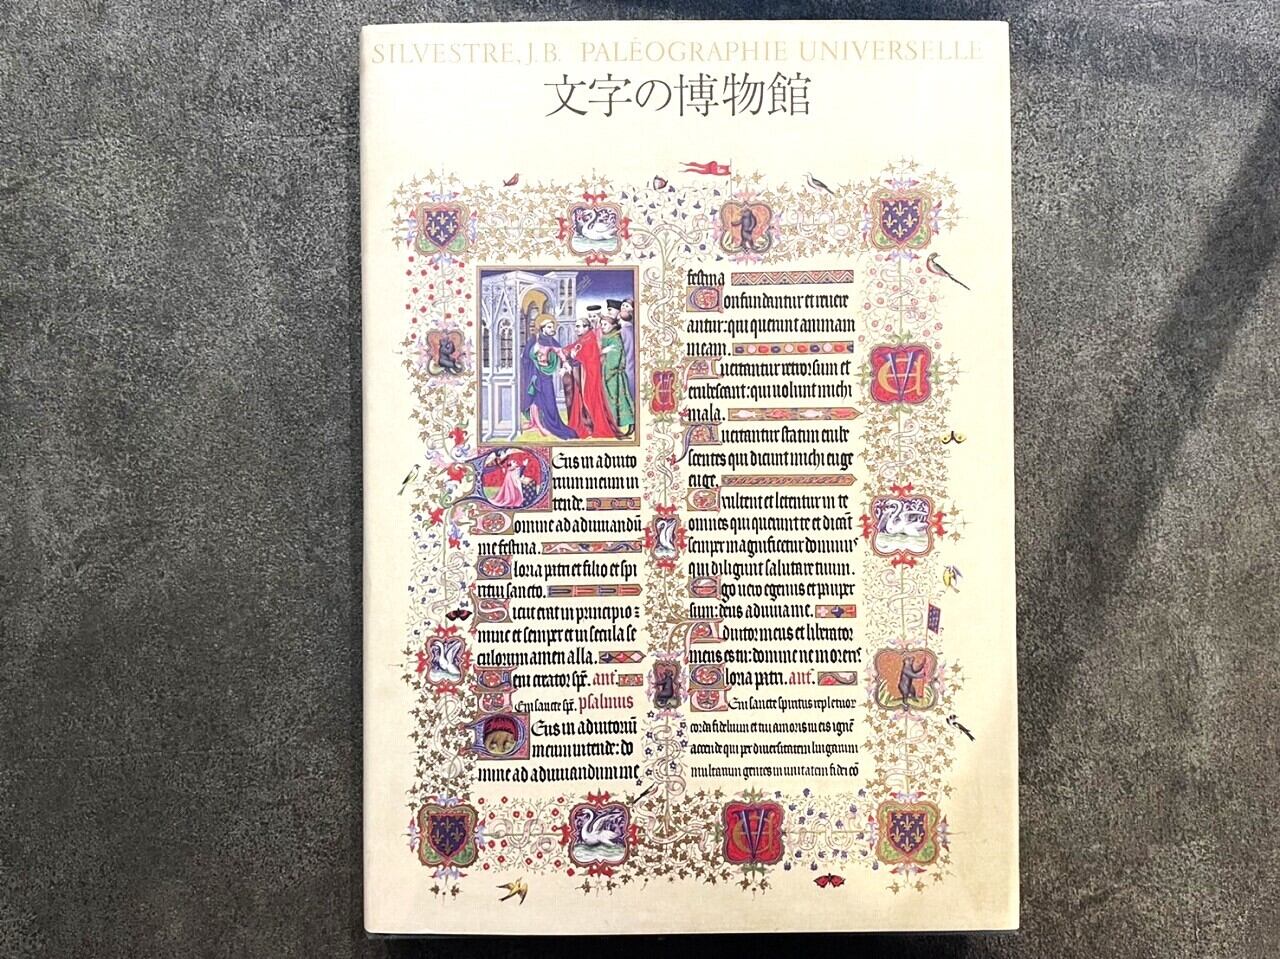 SILVESTRE, J.B. PALÉOGRAPHIE UNIVERSELLE
文字の博物館
Deus in adiuto
rium meum in
tende.
Domine ad adiuuandū
me festina.
Gloria patri et filio et spi
ritui sancto.
Sicut erat in principio
et nunc et semper et in secula se
culorum amen alla.
Ueni creator spē. ant.
Ueni sancte spē. psalmus
Deus in adiutoriū
meum intende: do
mine ad adiuuandum me
festina
Confundantur et reuere
antur: qui querunt animam
meam.
Auertantur retrorsum et
erubescant: qui uolunt michi
mala.
Auertantur statim erube
scentes qui dicunt michi euge
euge.
Exultent et letentur in te
omnes qui querunt te et dicāt
semper magnificetur dominus
qui diligunt salutare tuum.
Ego uero egenus et pauper
sum: deus adiuua me.
Adiutor meus et liberator
meus es tu: domine ne moreris
Gloria patri. ant.
Ueni sancte spiritus reple tuor
corda fidelium et tui amoris in eis ignē
accende qui per diuersitatem linguarum
multarum gentes in unitatem fidei cō